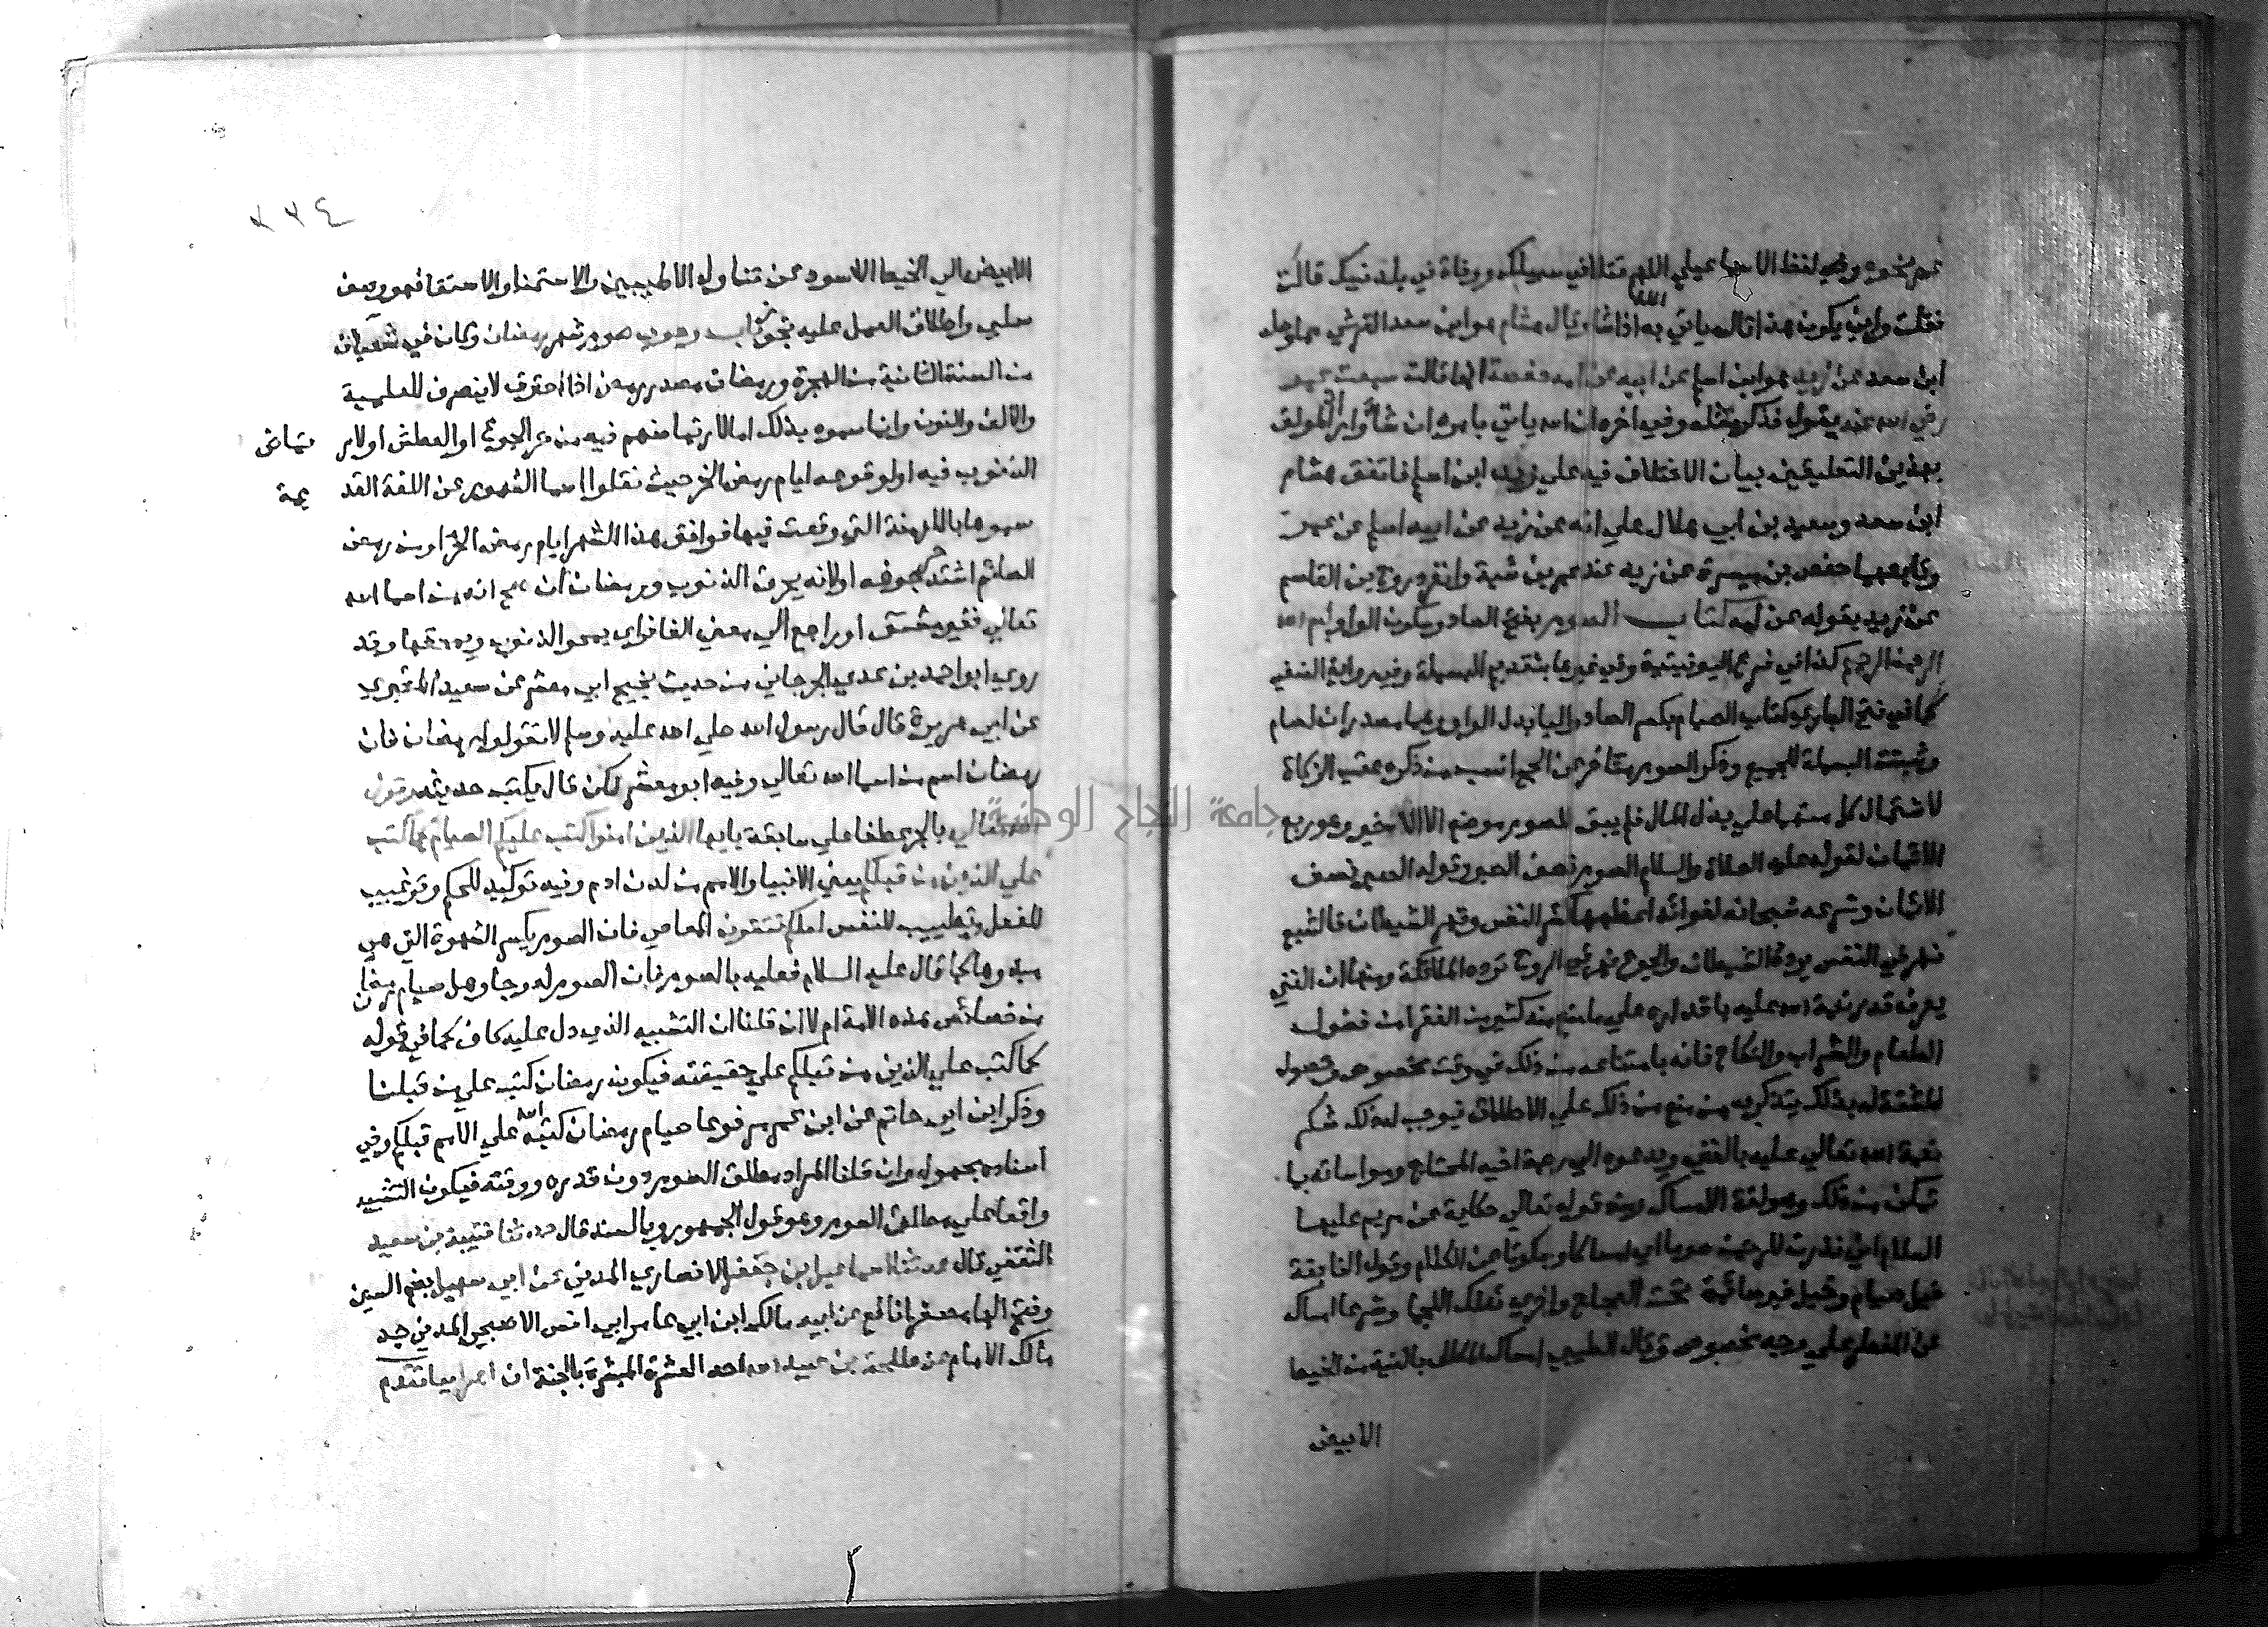 عمر نحوه وفيه لفظ الاسماعيلي اللهم قتلا في سبيلك ووفاة في بلد نبيك قالت
فقلت واني يكون هذا قال ياتي به الله اذا شا وقال هشام هو ابن سعد القرشي مما وصله
ابن سعد عن زيد هو ابن اسلم عن ابيه عن امه حفصة انها قالت سمعت عمر
رضي الله عنه يقول فذكر مثله وفي اخره ان الله ياتي بامره ان شا واراد المولف
بهذين التعليقين بيان الاختلاف فيه علي زيد ابن اسلم فاتفق هشام
ابن سعد وسعيد بن ابي هلال علي انه عن زيد عن ابيه اسلم عن عمر
وتابعهما حفص بن ميسرة عن زيد عند عمر بن شبة وانفرد روح بن القاسم
عن زيد بقوله عن امه كتاب الصوم بفتح الصاد وسكون الواو بسم الله
الرحمن الرحيم كذا في فرع اليونينية وفي غيرها بتقديم البسملة وفي رواية النسفي
كما في فتح الباري كتاب الصيام بكسر الصاد واليا بدل الواو وهما مصدران لصام
وثبتت البسملة للجميع وذكر الصوم متاخرا عن الحج انسب من ذكره عقب الزكاة
لاشتمال كل منهما علي بذل المال فلم يبق للصوم موضع الا الاخير وهو ربع
الايمان لقوله عليه الصلاة والسلام الصوم نصف الصبر وقوله الصبر نصف
الايمان وشرعه سبحانه لفوائد اعظمها كسر النفس وقهر الشيطان فالشبع
نهر في النفس يرده الشيطان والجوع نهر في الروح ترده الملائكة ومنها ان الغني
يعرف قدر نعمة الله عليه باقداره علي ما منع منه كثير من الفقرا من فضول
الطعام والشراب والنكاح فانه بامتناعه من ذلك في وقت مخصوص وحصول
المشقة له بذلك يتذكر به من منع من ذلك علي الاطلاق فيوجب له ذلك شكر
نعمة الله تعالي عليه بالغني ويدعوه الي رحمة اخيه المحتاج ومواساته بما
تمكن من ذلك وهو لغة الامساك ومنه قوله تعالي حكاية عن مريم عليها
السلام اني نذرت للرحمن صوما اي امساكا وسكوتا عن الكلام وقول النابغة
خيل صيام وخيل غير صائمة تحت العجاج واخري تعلك اللجما وشرعا امساك
عن المفطر علي وجه مخصوص وقال الطيبي امساك المكلف بالنية من الخيط
الابيض
٢٢٤
الابيض الي الخيط الاسود عن تناول الاطيبين والاستمنا والاستقا فهو وصف
سلبي واطلاق العمل عليه تجوز باب وجوب صوم شهر رمضان وكان في شعبان
من السنة الثانية من الهجرة ورمضان مصدر رمض اذا احترق لا ينصرف للعلمية
والالف والنون وانما سموه بذلك اما لارتماضهم فيه من حر الجوع او العطش او لارتماض
الذنوب فيه او لوقوعه ايام رمض الحر حيث نقلوا اسما الشهور عن اللغة القديمة
سموها بالازمنة التي وقعت فيها فوافق هذا الشهر ايام رمض الحر او من رمض
الصائم اشتد حر جوفه او لانه يحرق الذنوب ورمضان ان صح انه من اسما الله
تعالي فغير مشتق او راجع الي معني الغافر اي يمحو الذنوب ويمحقها وقد
روي ابو احمد بن عدي الجرجاني من حديث نجيح ابي معشر عن سعيد المقبري
عن ابي هريرة قال قال رسول الله صلي الله عليه وسلم لا تقولوا رمضان فان
رمضان اسم من اسما الله تعالي وفيه ابو معشر لكن قال يكتب حديثه وقول
الله تعالي بالجر عطفا علي سابقه يا ايها الذين امنوا كتب عليكم الصيام كما كتب
علي الذين من قبلكم يعني الانبيا والامم من لدن ادم وفيه توكيد للحكم وترغيب
للفعل وتطييب للنفس لعلكم تتقون المعاصي فان الصوم يكسر الشهوة التي هي
مبدوها كما قال عليه السلام فعليه بالصوم فان الصوم له وجا وهل صيام رمضان
من خصائص هذه الامة ام لا ان قلنا ان التشبيه الذي دل عليه كاف كما في قوله
كما كتب علي الذين من قبلكم علي حقيقته فيكون رمضان كتب علي من قبلنا
وذكر ابن ابي حاتم عن ابن عمر مرفوعا صيام رمضان كتبه الله علي الامم قبلكم وفي
اسناده مجهول وان قلنا المراد مطلق الصوم دون قدره ووقته فيكون التشبيه
واقعا علي مطلق الصوم وهو قول الجمهور وبالسند قال حدثنا قتيبة بن سعيد
الثقفي قال حدثنا اسماعيل بن جعفر الانصاري المدني عن ابي سهيل بضم السين
وفتح الها مصغرا نافع عن ابيه مالك ابن ابي عامر ابي انس الاصبحي المدني جد
مالك الامام عن طلحة بن عبيد الله احد العشرة المبشرة بالجنة ان اعرابيا تقدم
جامعة النجاح الوطنية